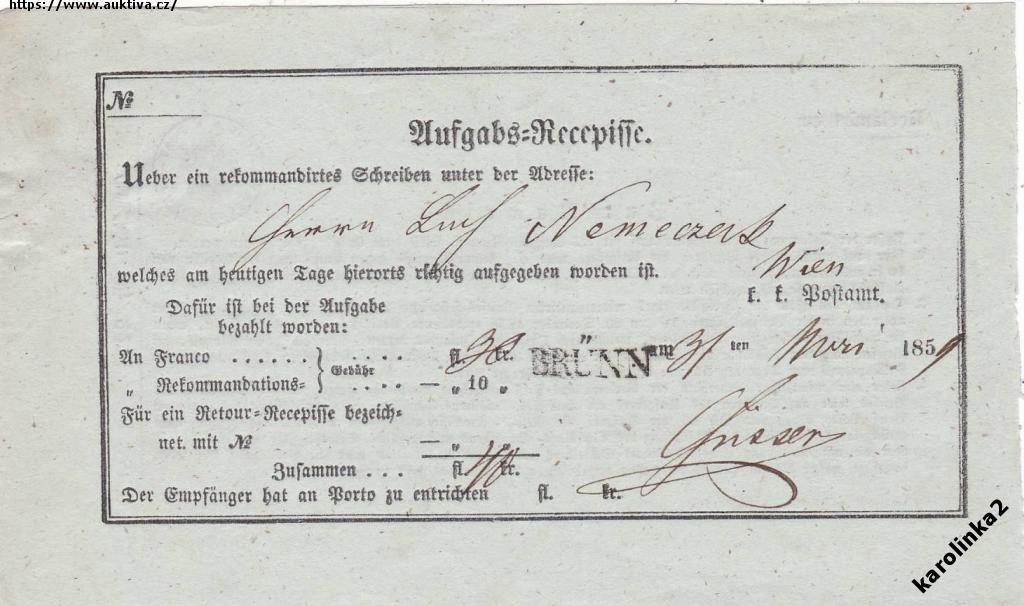 https://www.auktiva.cz/
№
Aufgabs-Recepisse.
Ueber ein rekommandirtes Schreiben unter der Adresse:
Herrn Nemeczek
Wien
welches am heutigen Tage hierorts richtig aufgegeben worden ist.
k. k. Postamt.
Dafür ist bei der Aufgabe
bezahlt worden:
An Franco . . . . . . } Gebühr . . . . fl. kr. BRÜNN am 31 ten 185
„ Rekommandations- . . . . — „ 10 „
Für ein Retour-Recepisse bezeich-
net mit № — „ „
Zusammen . . . fl. kr.
Der Empfänger hat an Porto zu entrichten fl. kr.
karolinka2